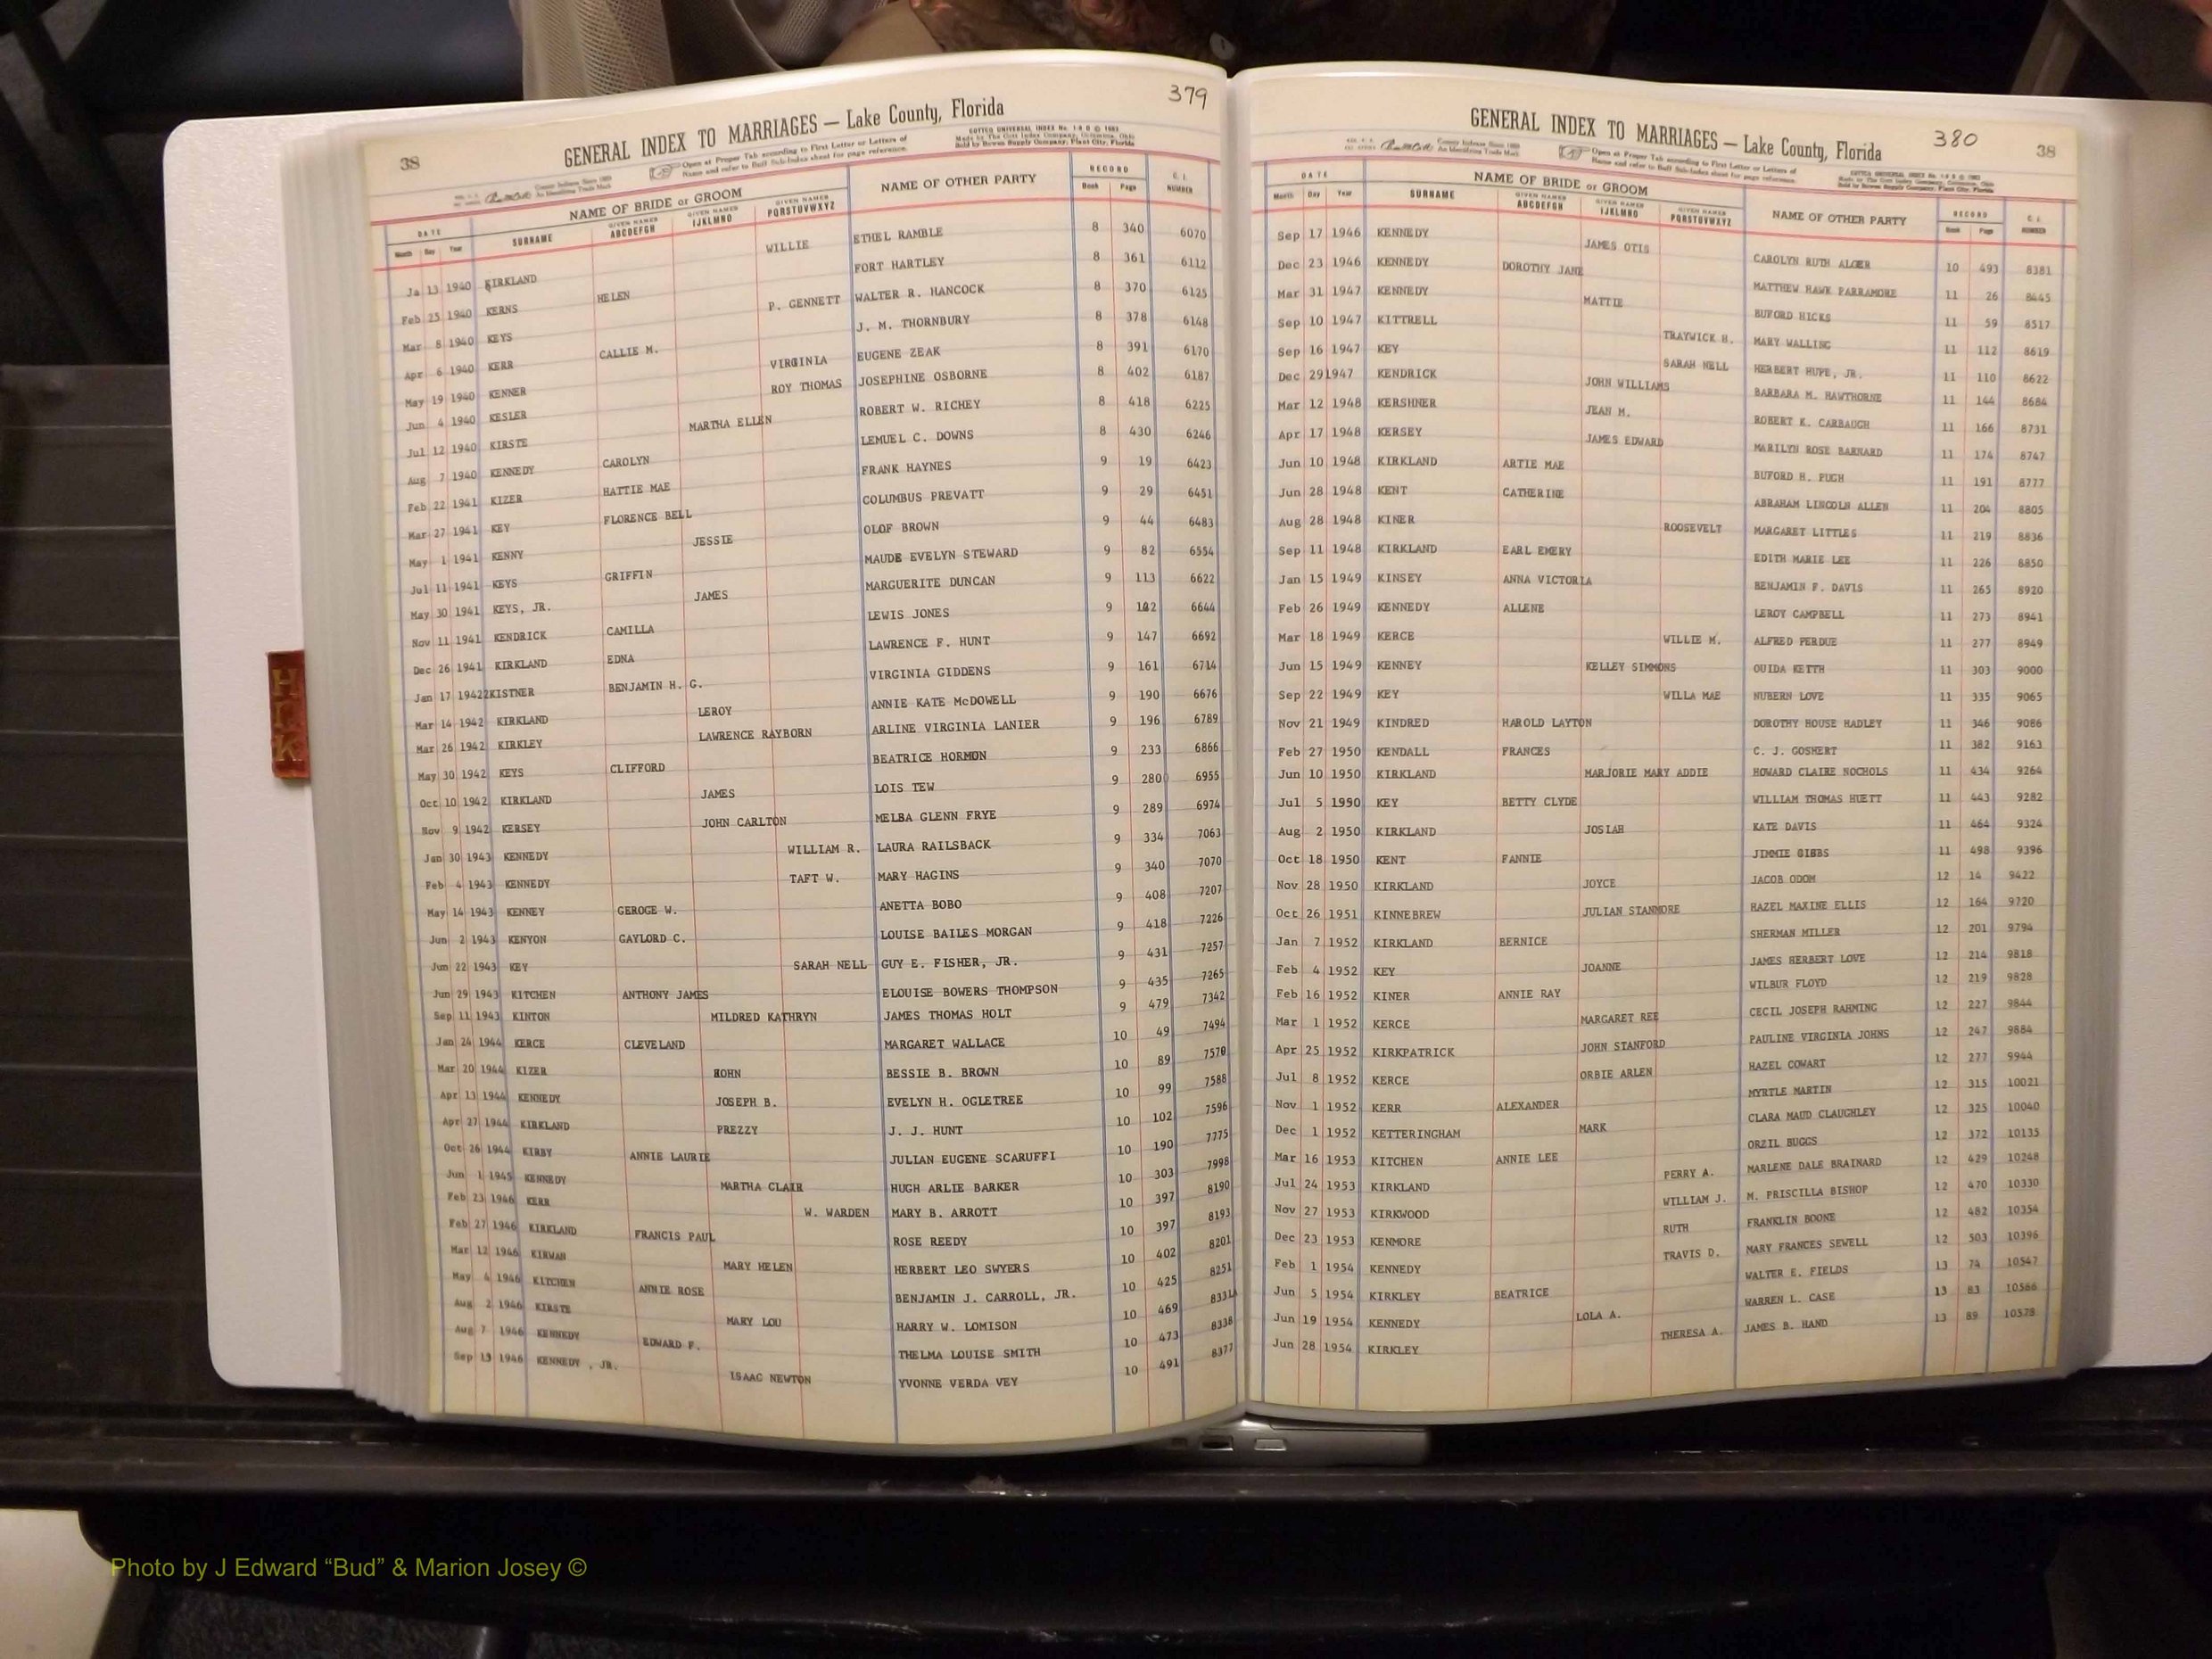 38
379
GENERAL INDEX TO MARRIAGES — Lake County, Florida
Open at Proper Tab according to First Letter or Letters of
Name and refer to Buff Sub-Index sheet for page reference.
Made by The Cott Index Company, Columbus, Ohio
Sold by Bowen Supply Company, Plant City, Florida
DATE NAME OF BRIDE or GROOM NAME OF OTHER PARTY RECORD C. I. NUMBER
Month Day Year SURNAME GIVEN NAMES ABCDEFGH GIVEN NAMES IJKLMNO GIVEN NAMES PQRSTUVWXYZ Book Page
Ja 13 1940 KIRKLAND WILLIE ETHEL RAMBLE 8 340 6070
Feb 25 1940 KERNS HELEN FORT HARTLEY 8 361 6112
Mar 8 1940 KEYS P. GENNETT WALTER R. HANCOCK 8 370 6125
Apr 6 1940 KERR CALLIE M. J. M. THORNBURY 8 378 6148
May 19 1940 KENNER VIRGINIA EUGENE ZEAK 8 391 6170
Jun 4 1940 KESLER ROY THOMAS JOSEPHINE OSBORNE 8 402 6187
Jul 12 1940 KIRSTE MARTHA ELLEN ROBERT W. RICHEY 8 418 6225
Aug 7 1940 KENNEDY CAROLYN LEMUEL C. DOWNS 8 430 6246
Feb 22 1941 KIZER HATTIE MAE FRANK HAYNES 9 19 6423
Mar 27 1941 KEY FLORENCE BELL COLUMBUS PREVATT 9 29 6451
May 1 1941 KENNY JESSIE OLOF BROWN 9 44 6483
Jul 11 1941 KEYS GRIFFIN MAUDE EVELYN STEWARD 9 82 6554
May 30 1941 KEYS, JR. JAMES MARGUERITE DUNCAN 9 113 6622
Nov 11 1941 KENDRICK CAMILLA LEWIS JONES 9 122 6644
Dec 26 1941 KIRKLAND EDNA LAWRENCE F. HUNT 9 147 6692
Jan 17 19422KISTNER BENJAMIN H. G. VIRGINIA GIDDENS 9 161 6714
Mar 14 1942 KIRKLAND LEROY ANNIE KATE McDOWELL 9 190 6676
Mar 26 1942 KIRKLEY LAWRENCE RAYBORN ARLINE VIRGINIA LANIER 9 196 6789
May 30 1942 KEYS CLIFFORD BEATRICE HORMON 9 233 6866
Oct 10 1942 KIRKLAND JAMES LOIS TEW 9 280 6955
Nov 9 1942 KERSEY JOHN CARLTON MELBA GLENN FRYE 9 289 6974
Jan 30 1943 KENNEDY WILLIAM R. LAURA RAILSBACK 9 334 7063
Feb 4 1943 KENNEDY TAFT W. MARY HAGINS 9 340 7070
May 14 1943 KENNEY GEROGE W. ANETTA BOBO 9 408 7207
Jun 2 1943 KENYON GAYLORD C. LOUISE BAILES MORGAN 9 418 7226
Jun 22 1943 KEY SARAH NELL GUY E. FISHER, JR. 9 431 7257
Jun 29 1943 KITCHEN ANTHONY JAMES ELOUISE BOWERS THOMPSON 9 435 7265
Sep 11 1943 KINTON MILDRED KATHRYN JAMES THOMAS HOLT 9 479 7342
Jan 24 1944 KERCE CLEVELAND MARGARET WALLACE 10 49 7494
Mar 20 1944 KIZER BESSIE B. BROWN 10 89 7570
Apr 13 1944 KENNEDY JOSEPH B. EVELYN H. OGLETREE 10 99 7588
Apr 27 1944 KIRKLAND PREZZY J. J. HUNT 10 102 7596
Oct 26 1944 KIRBY ANNIE LAURIE JULIAN EUGENE SCARUFFI 10 190 7775
Jun 1 1945 KENNEDY MARTHA CLAIR HUGH ARLIE BARKER 10 303 7998
Feb 23 1946 KERR W. WARDEN MARY B. ARROTT 10 397 8190
Feb 27 1946 KIRKLAND FRANCIS PAUL ROSE REEDY 10 397 8193
Mar 12 1946 KIRWAN MARY HELEN HERBERT LEO SWYERS 10 402 8201
May 4 1946 KITCHEN ANNIE ROSE BENJAMIN J. CARROLL, JR. 10 425 8251
Aug 2 1946 KIRSTE MARY LOU HARRY W. LOMISON 10 469
Aug 7 1946 KENNEDY EDWARD F. THELMA LOUISE SMITH 10 473 8338
Sep 13 1946 KENNEDY , JR. ISAAC NEWTON YVONNE VERDA VEY 10 491 8377
GENERAL INDEX TO MARRIAGES — Lake County, Florida
380
38
Open at Proper Tab according to First Letter or Letters of
Name and refer to Buff Sub-Index sheet for page reference.
DATE NAME OF BRIDE or GROOM NAME OF OTHER PARTY RECORD C. I. NUMBER
Month Day Year SURNAME GIVEN NAMES ABCDEFGH GIVEN NAMES IJKLMNO GIVEN NAMES PQRSTUVWXYZ Book Page
Sep 17 1946 KENNEDY JAMES OTIS CAROLYN RUTH ALGER 10 493 8381
Dec 23 1946 KENNEDY DOROTHY JANE MATTHEW HAWK PARRAMORE 11 26 8445
Mar 31 1947 KENNEDY MATTIE BUFORD HICKS 11 59 8517
Sep 10 1947 KITTRELL TRAYWICK H. MARY WALLING 11 112 8619
Sep 16 1947 KEY SARAH NELL HERBERT HUPE, JR. 11 110 8622
Dec 291947 KENDRICK JOHN WILLIAMS BARBARA M. HAWTHORNE 11 144 8684
Mar 12 1948 KERSHNER JEAN M. ROBERT K. CARBAUGH 11 166 8731
Apr 17 1948 KERSEY JAMES EDWARD MARILYN ROSE BARNARD 11 174 8747
Jun 10 1948 KIRKLAND ARTIE MAE BUFORD H. PUGH 11 191 8777
Jun 28 1948 KENT CATHERINE ABRAHAM LINCOLN ALLEN 11 204 8805
Aug 28 1948 KINER ROOSEVELT MARGARET LITTLES 11 219 8836
Sep 11 1948 KIRKLAND EARL EMERY EDITH MARIE LEE 11 226 8850
Jan 15 1949 KINSEY ANNA VICTORIA BENJAMIN F. DAVIS 11 265 8920
Feb 26 1949 KENNEDY ALLENE LEROY CAMPBELL 11 273 8941
Mar 18 1949 KERCE WILLIE M. ALFRED PERDUE 11 277 8949
Jun 15 1949 KENNEY KELLEY SIMMONS OUIDA KEITH 11 303 9000
Sep 22 1949 KEY WILLA MAE HUBERN LOVE 11 335 9065
Nov 21 1949 KINDRED HAROLD LAYTON DOROTHY HOUSE HADLEY 11 346 9086
Feb 27 1950 KENDALL FRANCES C. J. GOSHERT 11 382 9163
Jun 10 1950 KIRKLAND MARJORIE MARY ADDIE HOWARD CLAIRE NOCHOLS 11 434 9264
Jul 5 1950 KEY BETTY CLYDE WILLIAM THOMAS HUETT 11 443 9282
Aug 2 1950 KIRKLAND JOSIAH KATE DAVIS 11 464 9324
Oct 18 1950 KENT FANNIE JIMMIE GIBBS 11 498 9396
Nov 28 1950 KIRKLAND JOYCE JACOB ODOM 12 14 9422
Oct 26 1951 KINNEBREW JULIAN STANMORE HAZEL MAXINE ELLIS 12 164 9720
Jan 7 1952 KIRKLAND BERNICE SHERMAN MILLER 12 201 9794
Feb 4 1952 KEY JOANNE JAMES HERBERT LOVE 12 214 9818
Feb 16 1952 KINER ANNIE RAY WILBUR FLOYD 12 219 9828
Mar 1 1952 KERCE MARGARET REE CECIL JOSEPH RAHMING 12 227 9844
Apr 25 1952 KIRKPATRICK JOHN STANFORD PAULINE VIRGINIA JOHNS 12 247 9884
Jul 8 1952 KERCE ORBIE ARLEN HAZEL COWART 12 277 9944
Nov 1 1952 KERR ALEXANDER MYRTLE MARTIN 12 315 10021
Dec 1 1952 KETTERINGHAM MARK CLARA MAUD CLAUGHLEY 12 325 10040
Mar 16 1953 KITCHEN ANNIE LEE ORZIL BUGGS 12 372 10135
Jul 24 1953 KIRKLAND PERRY A. MARLENE DALE BRAINARD 12 429 10248
Nov 27 1953 KIRKWOOD WILLIAM J. M. PRISCILLA BISHOP 12 470 10330
Dec 23 1953 KENMORE RUTH FRANKLIN BOONE 12 482 10354
Feb 1 1954 KENNEDY TRAVIS D. MARY FRANCES SEWELL 12 503 10396
Jun 5 1954 KIRKLEY BEATRICE WALTER E. FIELDS 13 74 10547
Jun 19 1954 KENNEDY LOLA A. WARREN L. CASE 13 83 10566
Jun 28 1954 KIRKLEY THERESA A. JAMES B. HAND 13 89 10578
H
I
K
Photo by J Edward “Bud” & Marion Josey ©